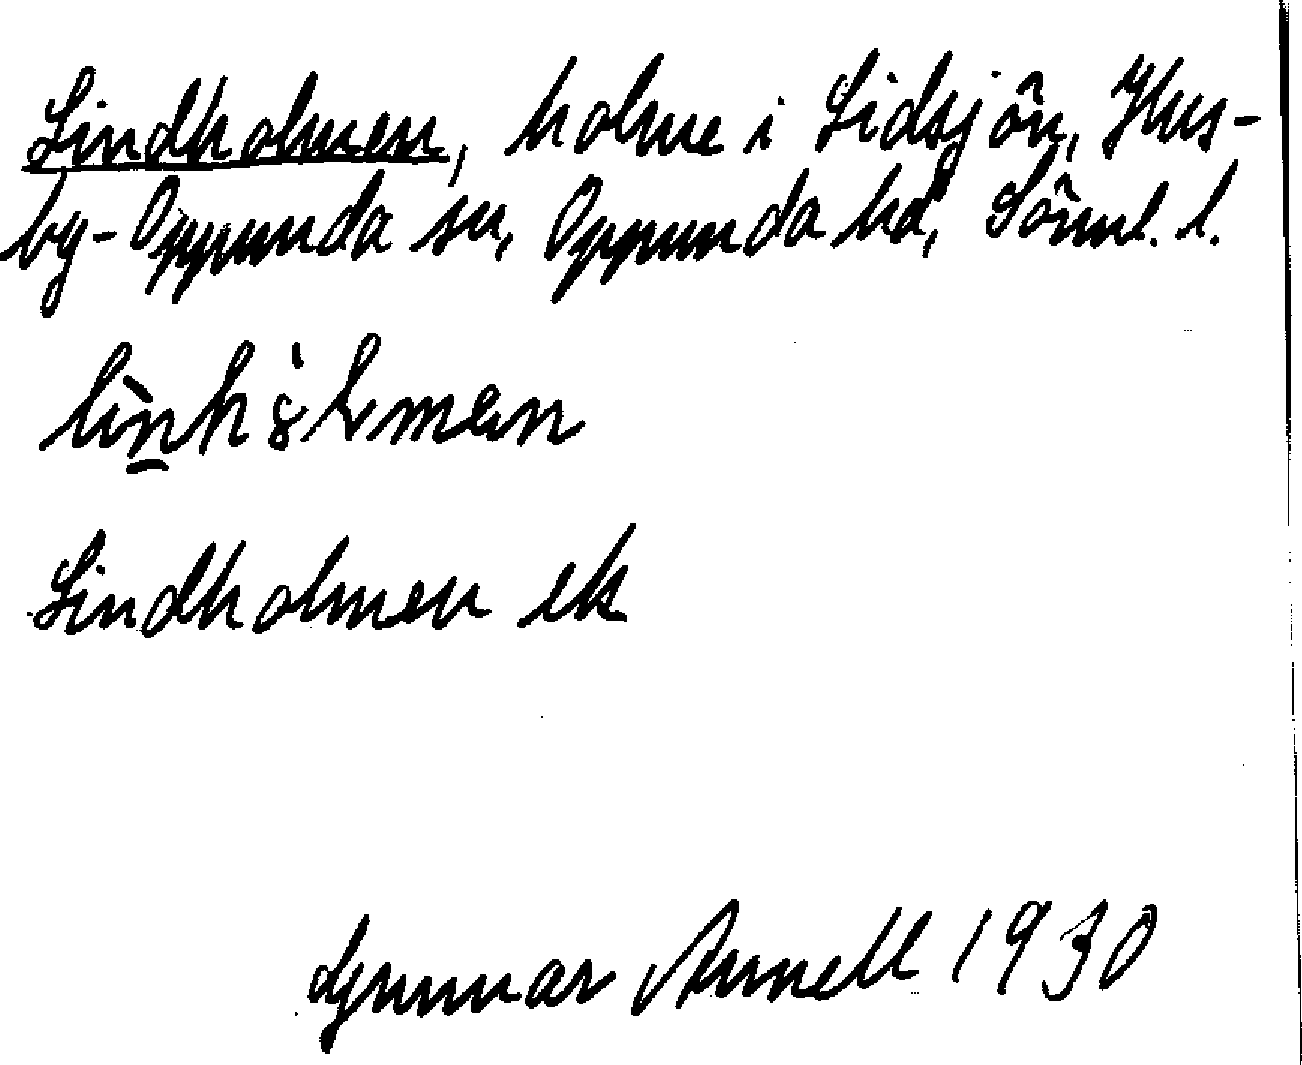 Lindholmen, holme i Lidsjön, Hus-
by-Oppunda sn, Oppunda hd, Sörml. l.
Lindholmen ek
Gunnar Arnell 1930